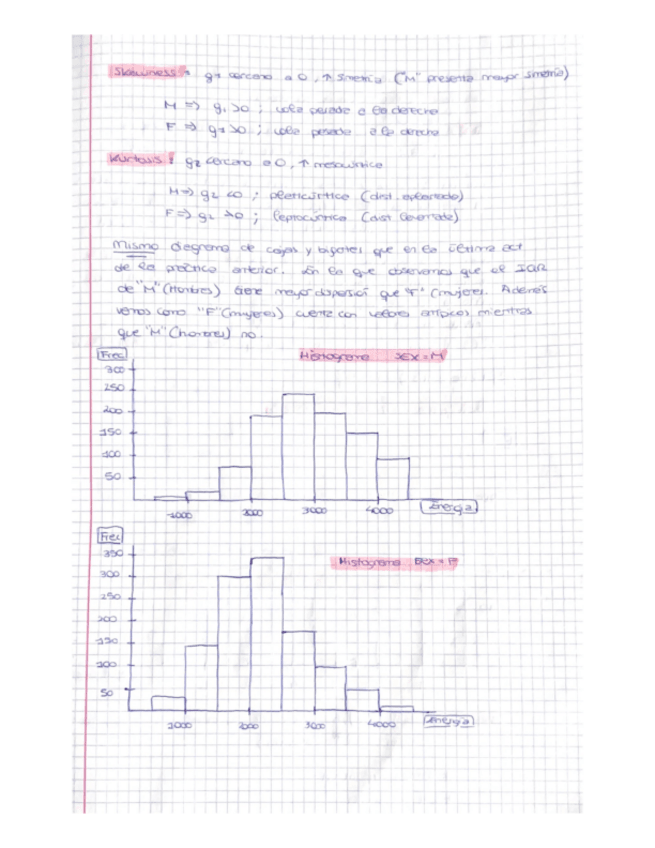 Skewness: g1 cercano a 0, ↑ simetría ("M" presenta mayor simetría)
M => g1 >0 ; cola pesada a la derecha
F => g1 >0 ; cola pesada a la derecha
Kurtosis: g2 cercano a 0, ↑ mesocúrtica
M => g2 <0 ; platicúrtica (dist. aplanada)
F => g2 >0 ; leptocúrtica (dist. levantada)
Mismo diagrama de cajas y bigotes que en la última act.
de la práctica anterior. En la que observamos que el IQR
de "M" (Hombres) tiene mayor dispersión que "F" (mujeres). Además
vemos como "F" (mujeres) cuenta con valores atípicos mientras
que "M" (hombres) no.
Frec
Histograma SEX = M
300
250
200
150
100
50
1000 2000 3000 4000 Energia
Frec
Histograma SEX = F
350
300
250
200
150
100
50
1000 2000 3000 4000 Energia